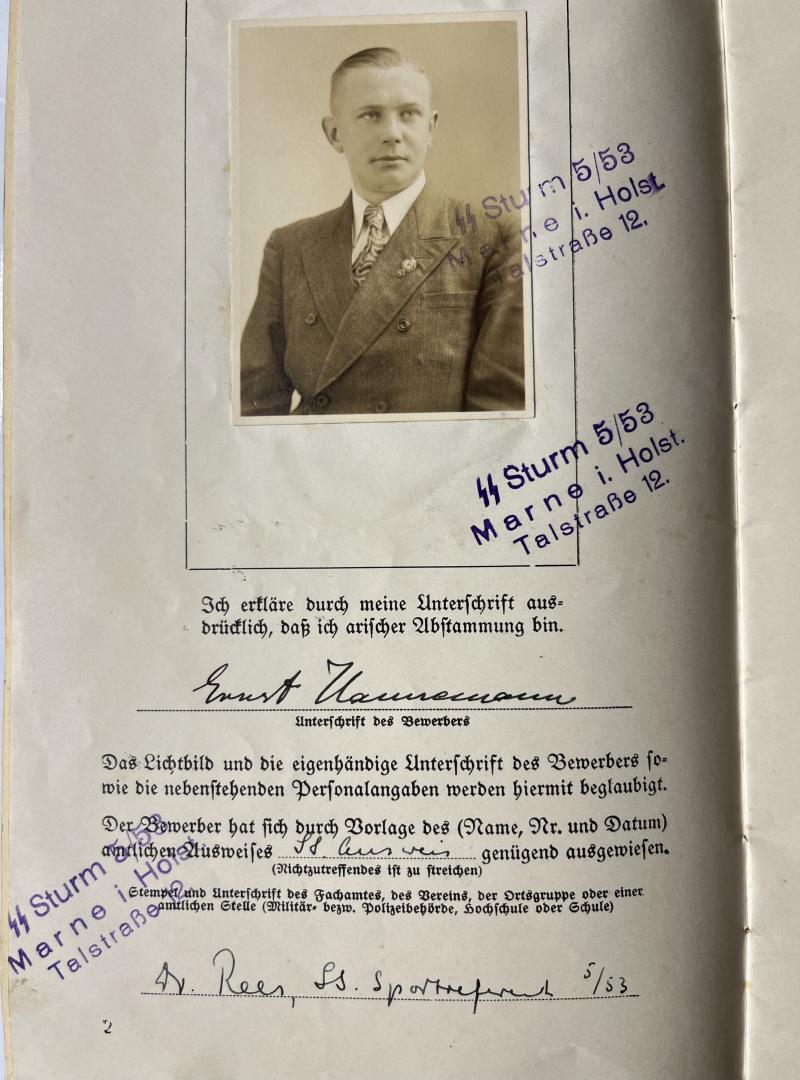 ᛋᛋ Sturm 5/53
Marne i. Holst.
Talstraße 12.
ᛋᛋ Sturm 5/53
Marne i. Holst.
Talstraße 12.
Ich erkläre durch meine Unterschrift aus-
drücklich, daß ich arischer Abstammung bin.
Ernst Hannemann
Unterschrift des Bewerbers
Das Lichtbild und die eigenhändige Unterschrift des Bewerbers so-
wie die nebenstehenden Personalangaben werden hiermit beglaubigt.
Der Bewerber hat sich durch Vorlage des (Name, Nr. und Datum)
amtlichen Ausweises SS. Ausweis genügend ausgewiesen.
(Nichtzutreffendes ist zu streichen)
Stempel und Unterschrift des Fachamtes, des Vereins, der Ortsgruppe oder einer
amtlichen Stelle (Militär- bezw. Polizeibehörde, Hochschule oder Schule)
ᛋᛋ Sturm 5/53
Marne i. Holst.
Talstraße 12.
Dr. Rees, SS. Sportreferent 5/53
2